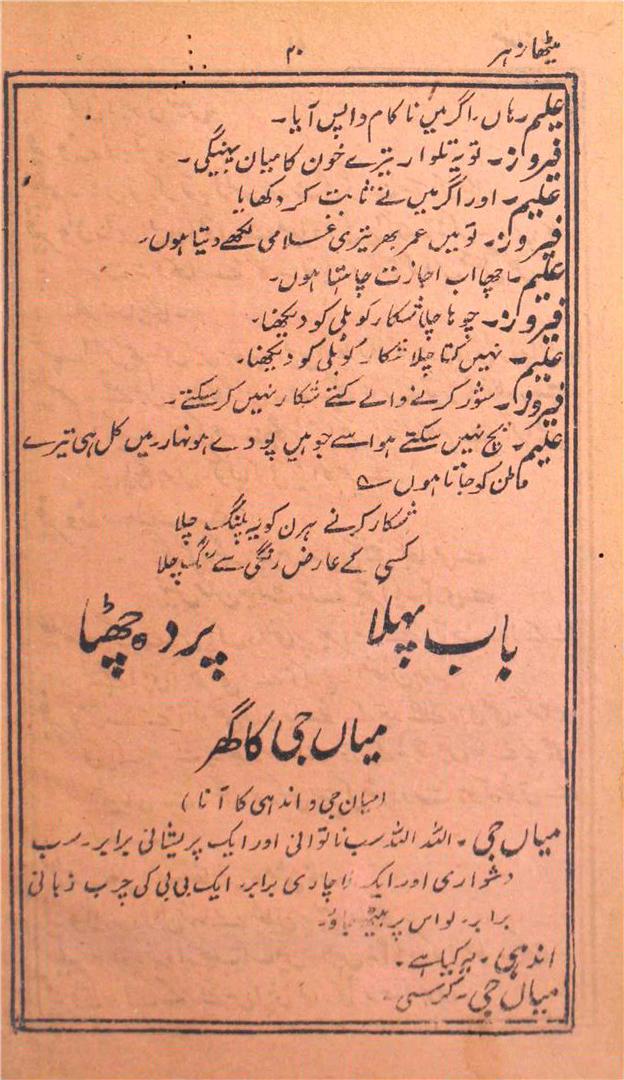 میٹھا زہر ۲۰
علیم۔ ہاں۔ اگر میں ناکام واپس آیا۔
فیروز۔ تو یہ تلوار تیرے خون کا میان پہنیگی۔
علیم۔ اور اگر میں نے ثابت کر دکھایا
فیروز۔ تو میں عمر بھر تیری غلامی لکھے دیتا ہوں۔
علیم۔ اچھا اب اجازت چاہتا ہوں۔
فیروز۔ چوہا چلا شکار کو بلی کو دیکھنا۔
علیم۔ نہیں کتا چلا شکار کو بلی کو دیکھنا۔
فیروز۔ شور کرنے والے کتے شکار نہیں کر سکتے۔
علیم۔ بچ نہیں سکتے ہوا سے جو ہیں پودے ہونہار۔ میں کل ہی تیرے
وطن کو جاتا ہوں ے
شکار کرنے ہرن کو یہ پلنگ چلا
کسی کے عارض رنگی سے رنگ چلا
باب پہلا پردہ چھٹا
میاں جی کا گھر
(میان جی و اندہی کا آنا)
میاں جی۔ اللہ اللہ سب ناتوانی اور ایک پریشانی برابر۔ سب
دشواری اور ایک لاچاری برابر۔ ایک بی بی کی چرب زبانی
برابر۔ لو اس پر بیٹھ جاؤ۔
اندہی۔ یہ کیا ہے۔
میاں جی۔ کرسی۔